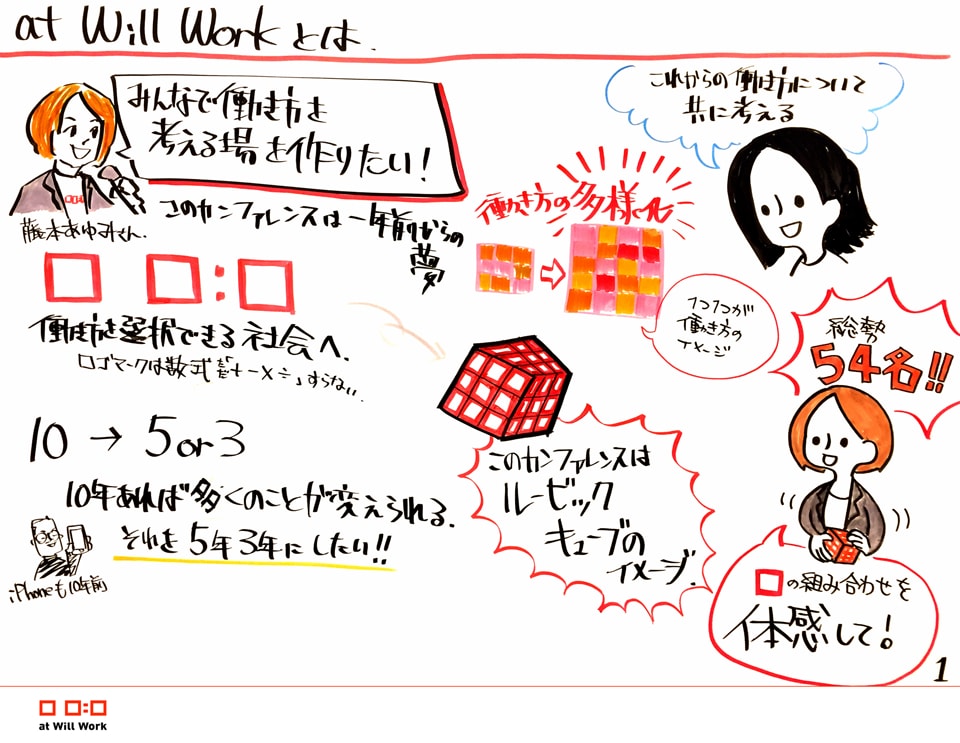 at Will Workとは.
みんなで働き方を
考える場を作りたい!
藤本あゆみさん.
このカンファレンスは一年前からの
夢
働き方を選択できる社会へ.
ロゴマークは数式だと「+-×÷」すらない.
10 → 5 or 3
10年あれば多くのことが変えられる.
それを5年3年にしたい!!
iPhoneも10年前
これからの働き方について
共に考える
働き方の多様化
1つ1つが
働き方の
イメージ
このカンファレンスは
ルービック
キューブの
イメージ.
総勢
54名!!
の組み合わせを
体感して!
1
at Will Work